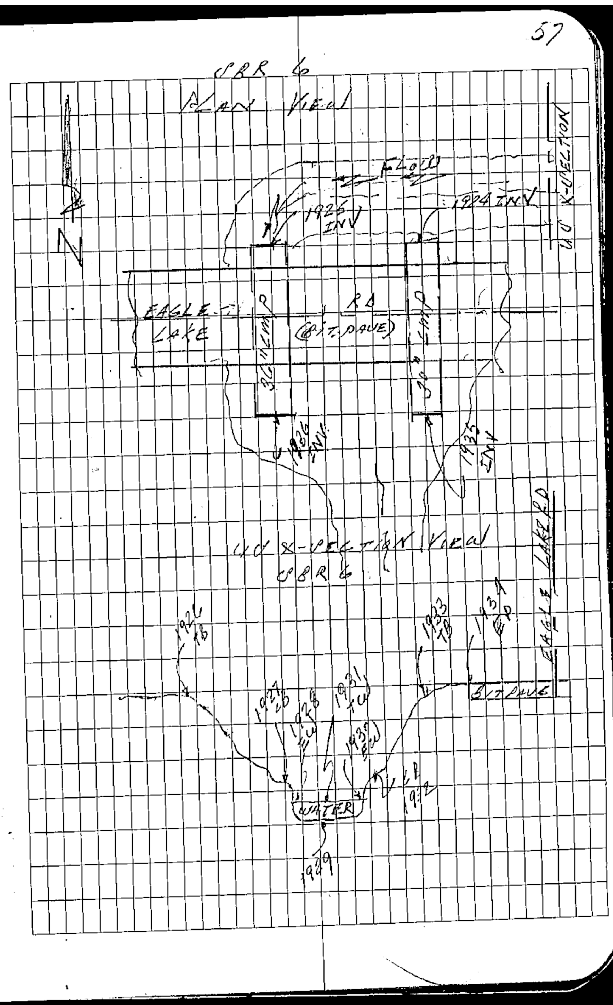 57
SBR 6
PLAN VIEW
FLOW
U/S X-SECTION
1925
INV
1924 INV
N
EAGLE
LAKE
RD
(BIT. PAVE)
36" CMP
30" CMP
1936
INV
1935
INV
U/S X-SECTION VIEW
SBR 6
EAGLE LAKE RD
1926
TB
1933
TB
1934
EP
BIT PAVE
1927
LB
1928
EW
1931
TW
1930
EW
LB
1932
WATER
1929